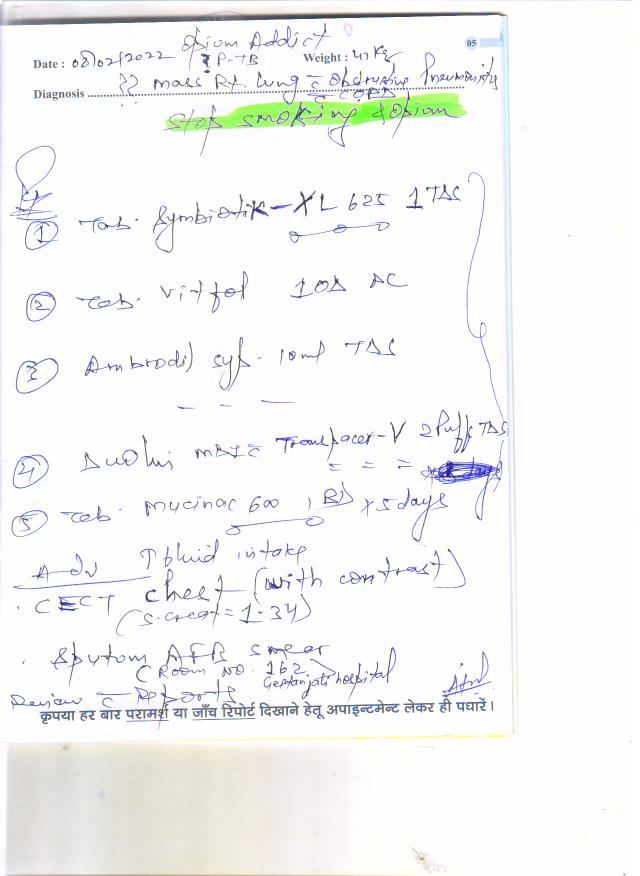 05
Opium Addict
Date : 08/02/2022 ? P-TB Weight : 47 Kg
Diagnosis ?? mass Rt. lung c̄ obstructive Pneumonitis
c̄ COPD
Stop smoking & opium
① Tab. Symbiotik-XL 625 1 TDS
② Tab. Vitfol 1 OD AC
③ Ambrodil syp. 10ml TDS
④ Duolin MDI c̄ Transpacer-V 2 Puff TDS
⑤ Tab. Mucinac 600 1 BD x 5 days
Adv ↑ fluid intake
. CECT chest (with contrast)
(S. creat = 1.34)
. Sputum AFB smear
(Room No. 162 Geetanjali hospital
Review c̄ Reports
कृपया हर बार परामर्श या जाँच रिपोर्ट दिखाने हेतू अपाइन्टमेन्ट लेकर ही पधारें।